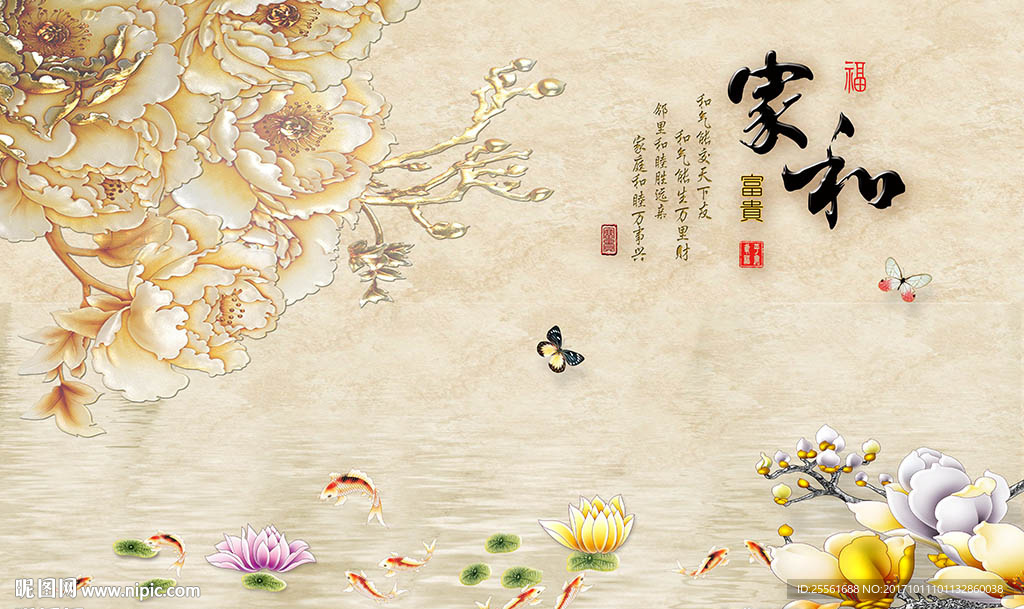 福
家和
富貴
和气能交天下友
和气能生万里财
邻里和睦胜远亲
家庭和睦万事兴
昵图网 www.nipic.com
ID:25561688 NO:20171011101132860038